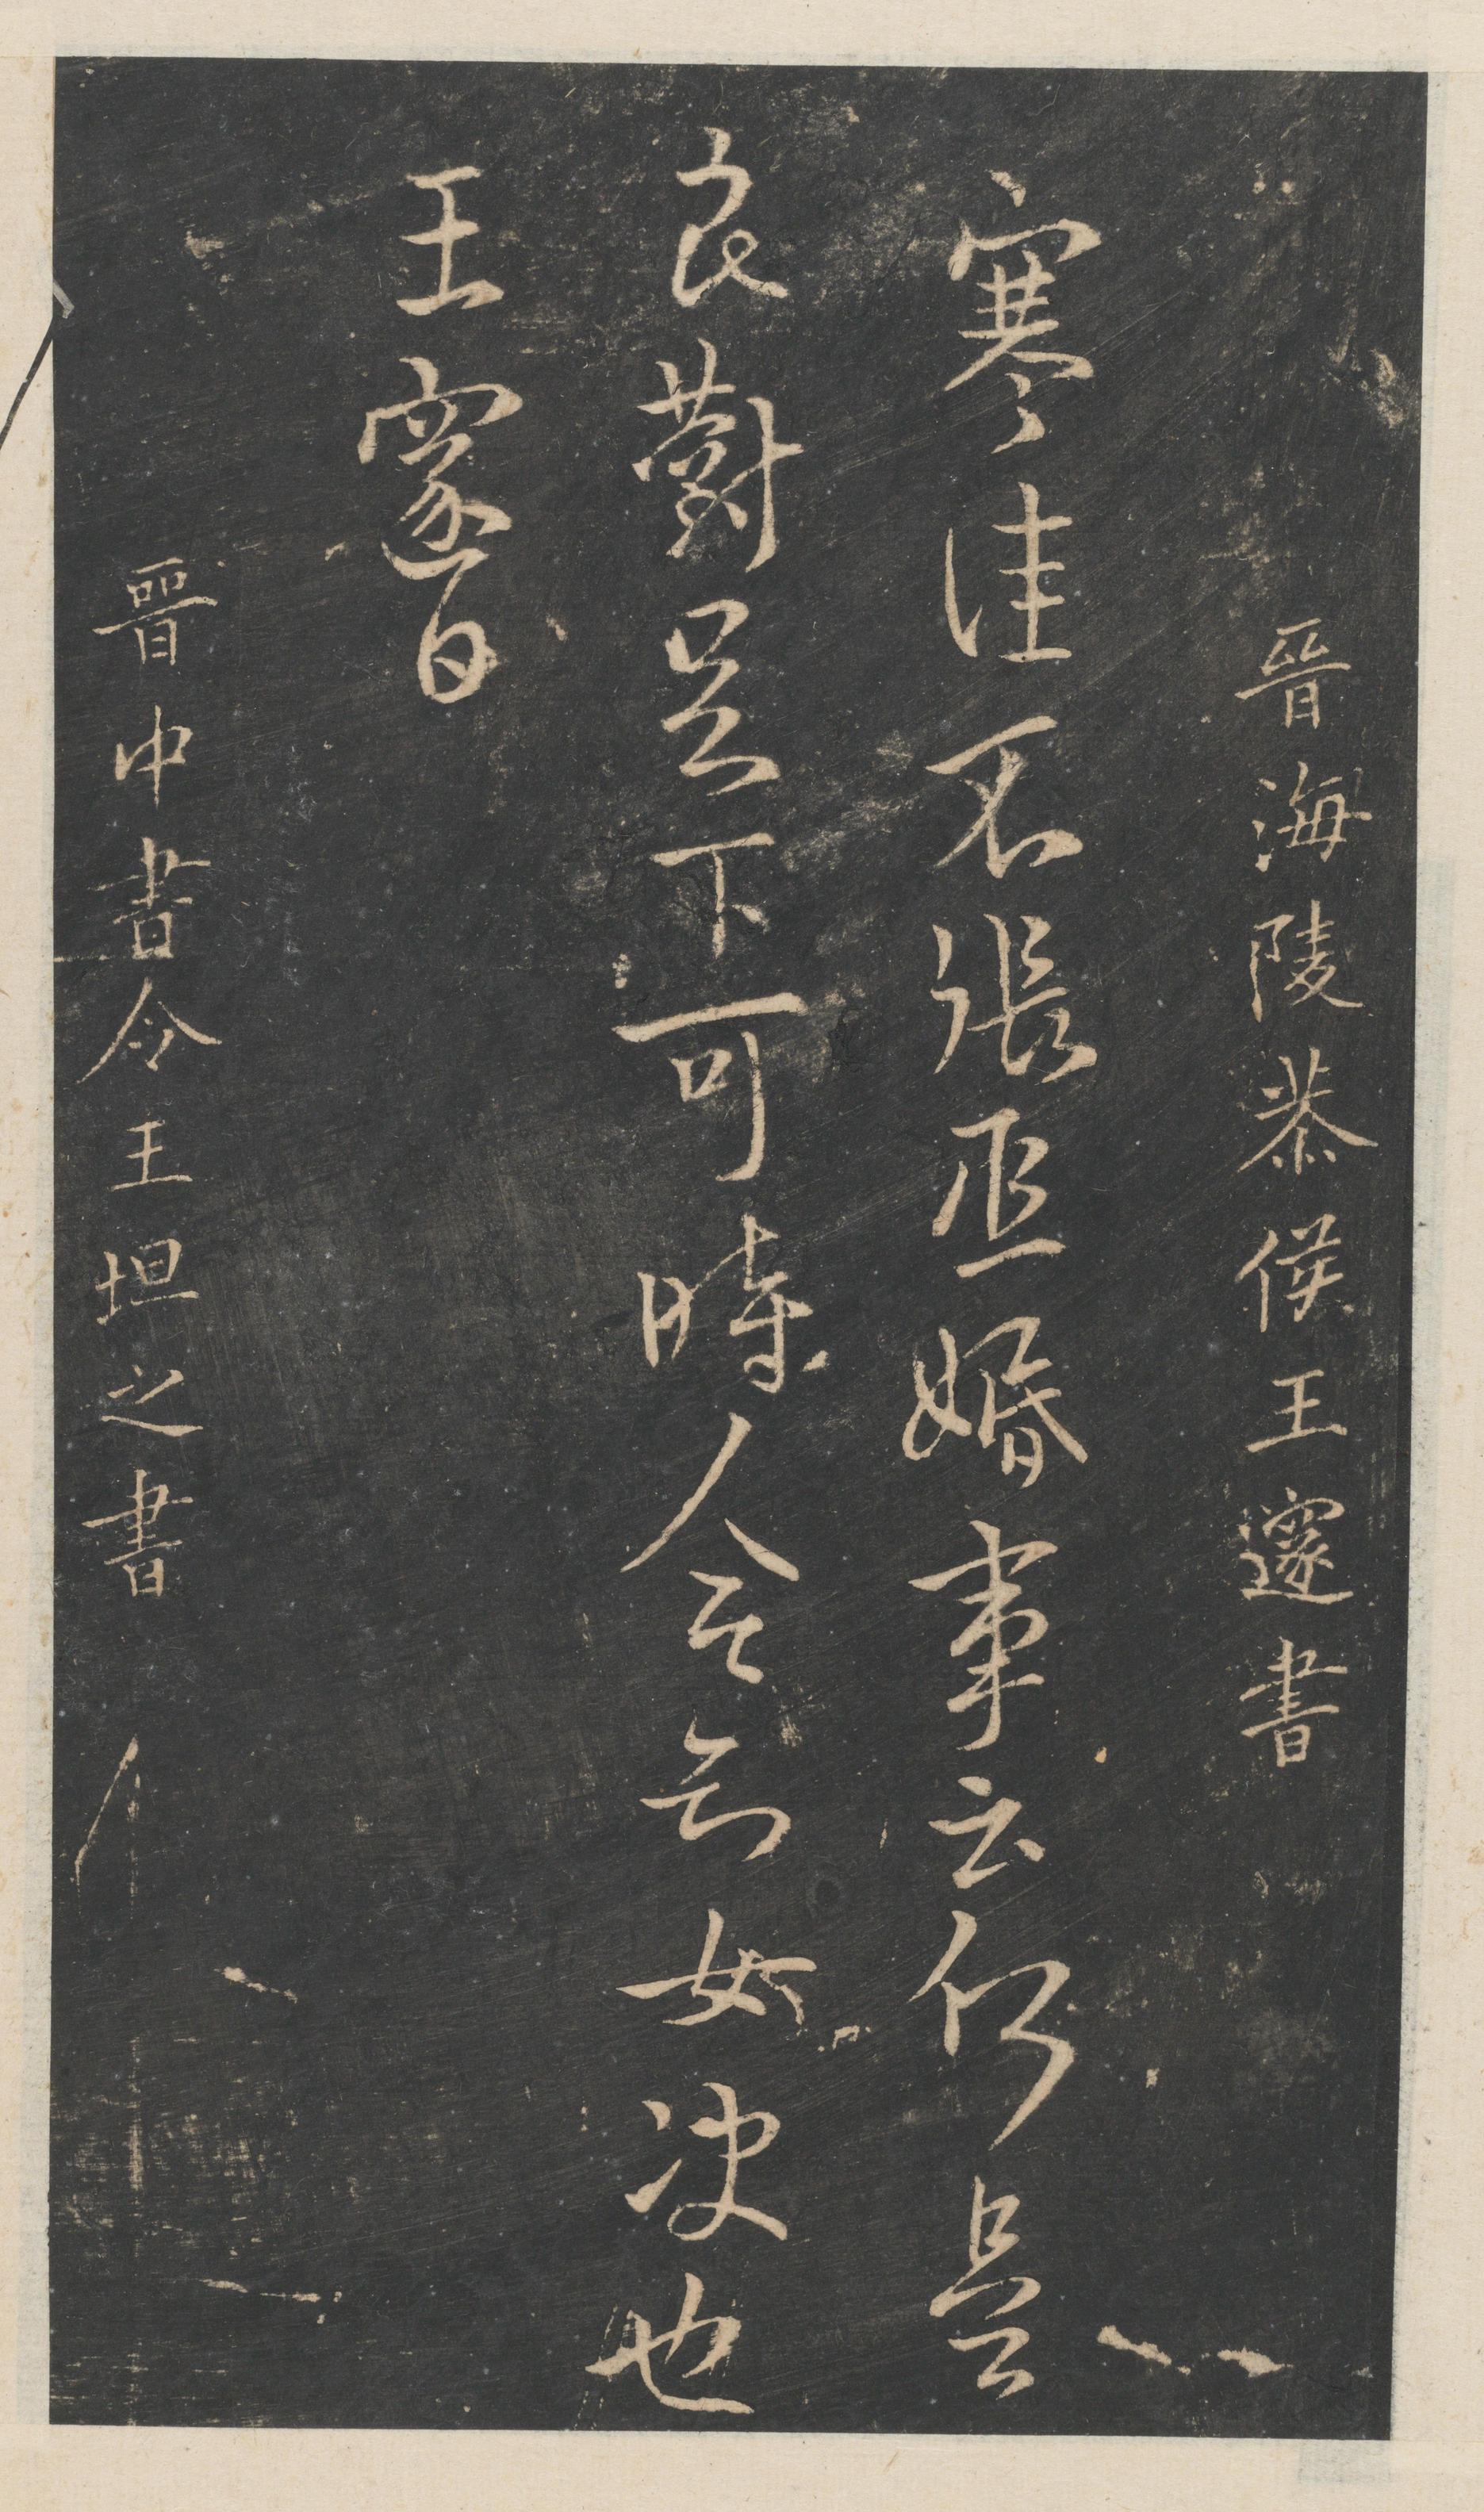 晉海陵恭侯王邃書
寒佳不張丞婚事云何是
良對足下可時令知如決也
王邃白
晉中書令王坦之書